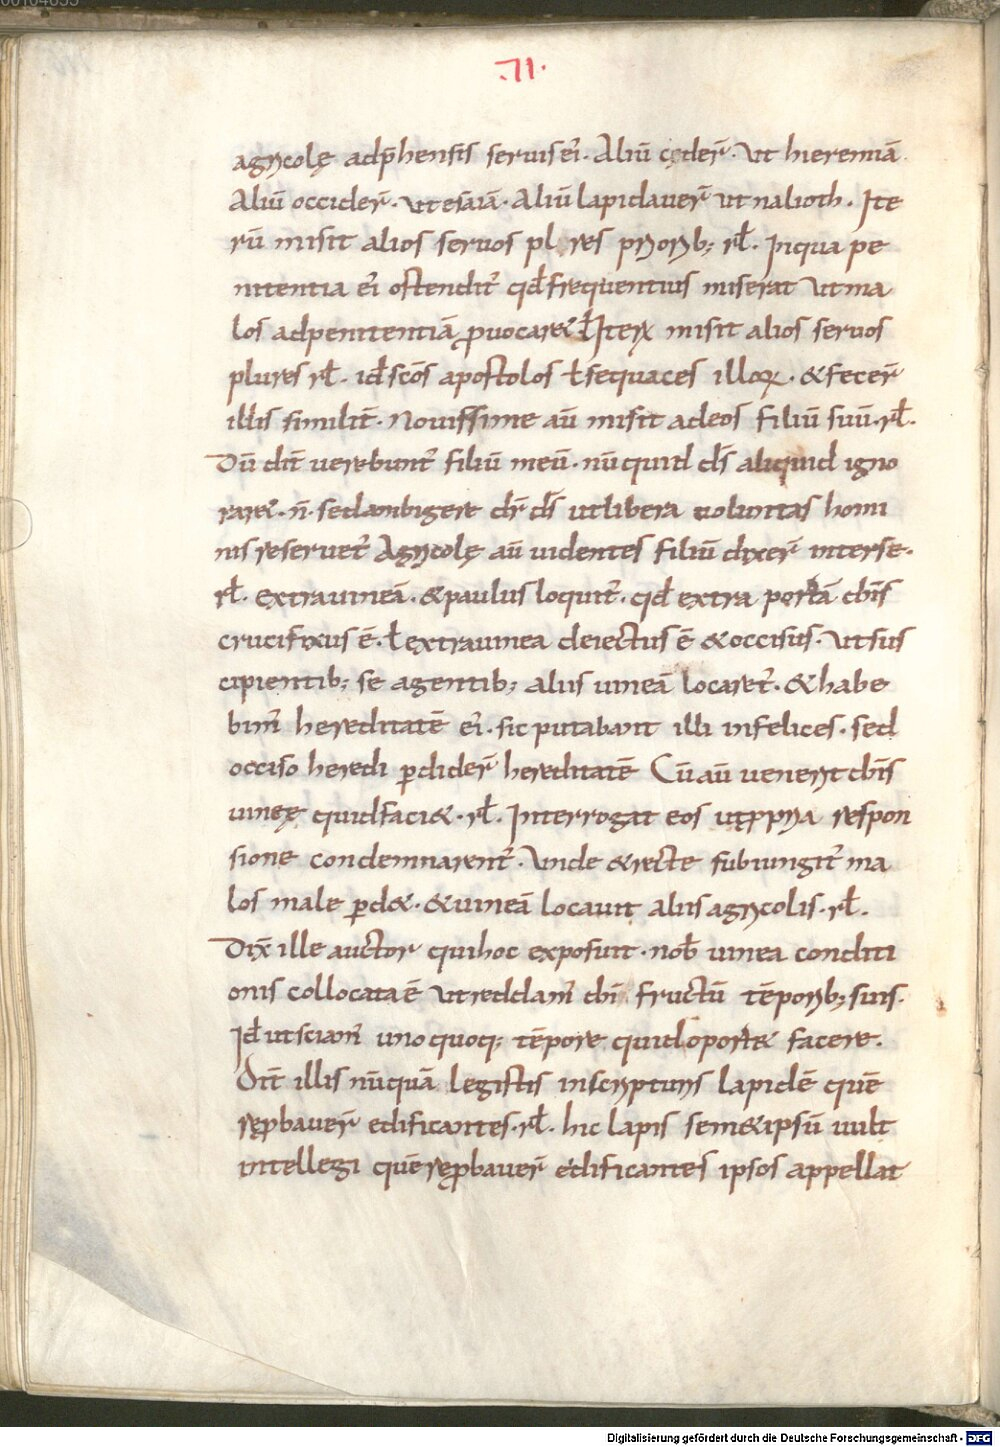 .71.
agricolę adp̄hensis seruis ei᷒. Aliū cęder̄. Ut hieremiā.
Aliū occider̄. ut esaiā. Aliū lapidauer̄ ut naboth. Ite
rū misit alios seruos plures priorib; rł. Inqua pe
nitentia ei᷒ ostendit᷒ qđ frequentius miserat ut ma
los adpenitentiā ꝓuocar&. ł Iterū misit alios seruos
plures rł. iđ scōs apostolos ł sequaces illoꝝ. & fecer̄
illis similit̄. Nouissime aū misit adeos filiū suū. rł.
Dū dit̄ uerebunt᷒ filiū meū. nūquid ds̄ aliquid igno
rar&. n̄. sed ambigere dr̄ ds̄ ut libera uoluntas homi
nis reseruet᷒ Agricolę aū uidentes filiū dixer̄ interse.
rł. extrauineā. & paulus loquit᷒. qđ extra portā dn̄s
crucifixus ē. ł extrauinea deiectus ē & occisus. Ut sus
cipientib; se agentib; aliis uineā locaret᷒. & habe
bim᷒ hereditatē ei᷒. sic putabant illi infelices. sed
occiso heredi ꝑdider̄ hereditatē Cū aū uenerit dn̄s
uineę quid faci&. rł. Interrogat eos utꝓpria respon
sione condemnarent᷒. Unde & recte subiungit᷒ ma
los male ꝑd&. & uineā locauit aliis agricolis. rł.
Dix̄ ille auctor qui hoc exposuit. nob̄ uinea conditi
onis collocata ē Ut reddam᷒ dn̄i fructū tēporib; suis.
Iđ ut sciam᷒ uno quoq; tēpore quid oport& facere.
Dit̄ illis nūquā legistis inscripturis lapidē quē
reꝓbauer̄ edificantes. rł. hic lapis sem&ipsū uult
intellegi quē reꝓbauer̄ edificantes ipsos appellat
Digitalisierung gefördert durch die Deutsche Forschungsgemeinschaft - DFG